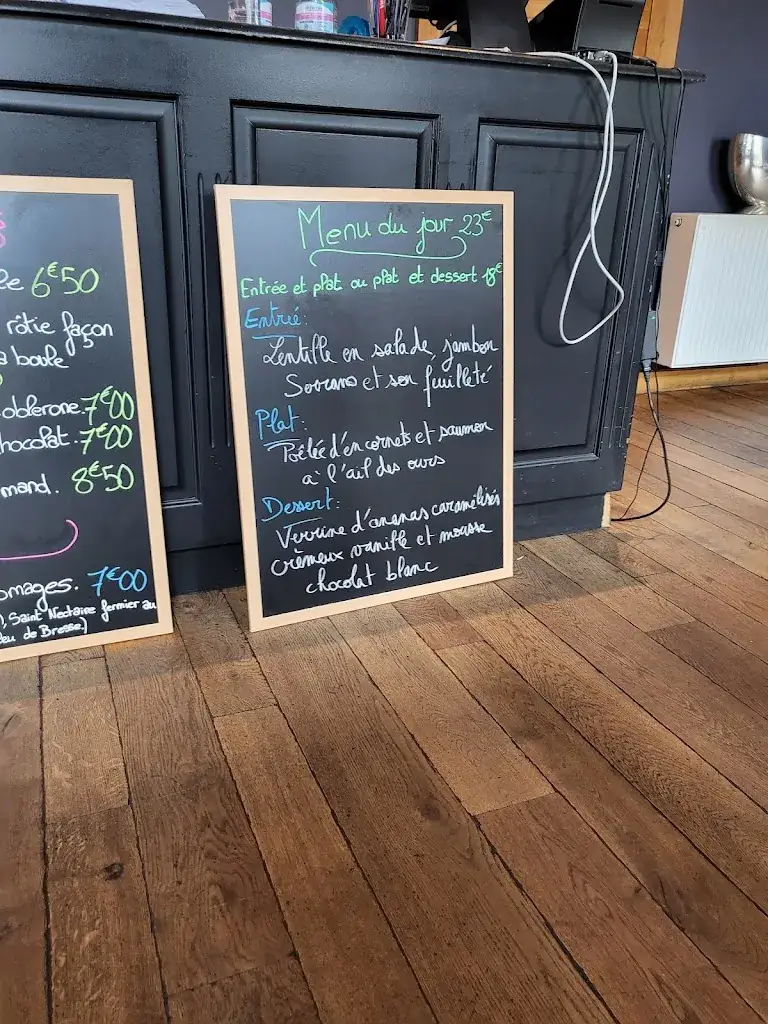 le 6€50
rôtie façon
a boule
oblerone. 7€00
hocolat. 7€00
mand. 8€50
omages. 7€00
, Saint Nectaire fermier au
eu de Bresse)
Menu du jour 23€
Entrée et plat ou plat et dessert 18€
Entrée:
Lentille en salade, jambon
Serrano et son feuilleté
Plat:
Poêlée d'encornets et saumon
à l'ail des ours
Dessert:
Verrine d'ananas caramélisés
crèmeux vanille et mousse
chocolat blanc